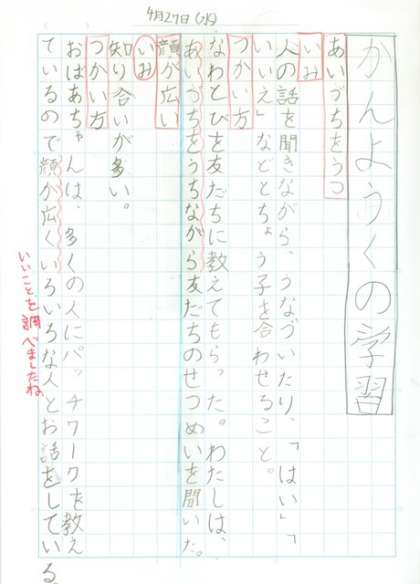 4月27日(水)
かんようくの学習
あいづちをうつ
いみ
人の話を聞きながら、うなづいたり、「はい」、「
いいえ」などとちょう子を合わせること。
つかい方
なわとびを友だちに教えてもらった。わたしは、
あいづちをうちながら友だちのせつめいを聞いた。
顔が広い
いみ
知り合いが多い。
つかい方
おばあちゃんは、多くの人にパッチワークを教え
ているので顔が広くいろいろな人とお話をしている
いいことを調べましたね